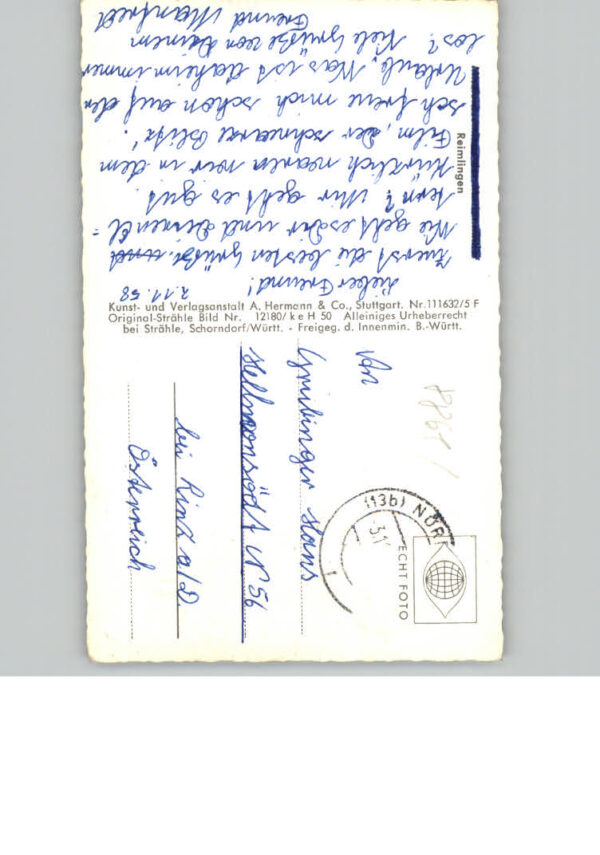 2.11.58
Lieber Freund!
Zuerst die besten Grüße. und
Wie geht es Dir und Deinen El=
tern? Mir geht es gut.
Kürzlich waren wir in dem
Film, "Der schwarze Blitz".
Ich freue mich schon auf den
Urlaub. Was ist daheim immer
los? Viele Grüße von Deinem
Freund Manfred
Reimlingen
Kunst- und Verlagsanstalt A. Hermann & Co., Stuttgart. Nr.111632/5 F
Original-Strähle Bild Nr. 12180/ k e H 50 Alleiniges Urheberrecht
bei Strähle, Schorndorf/Württ. - Freigeg. d. Innenmin. B.-Württ.
An
Hans
Hellmonsödt No 56
bei Linz a/D.
Österreich
(13b) NÖR
ECHT FOTO